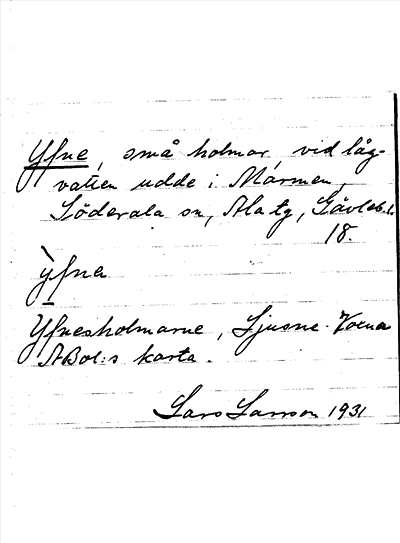 Yfne, små holmar, vid låg-
vatten udde i Marmen,
Söderala sn, Ala tg, Gävleb. l.
18.
ỳfne
Yfnesholmarne, Ljusne-Voxna
ABol:s karta.
Lars Larsson 1931